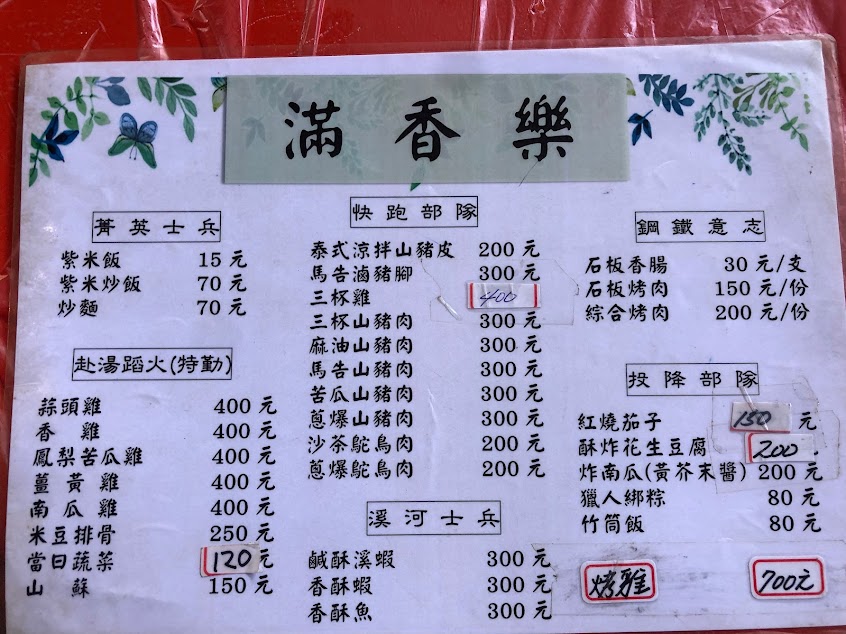 滿香樂
菁英士兵
紫米飯 15元
紫米炒飯 70元
炒麵 70元
赴湯蹈火(特勤)
蒜頭雞 400元
香雞 400元
鳳梨苦瓜雞 400元
薑黃雞 400元
南瓜雞 400元
米豆排骨 250元
當日蔬菜 120元
山蘇 150元
快跑部隊
泰式涼拌山豬皮 200元
馬告滷豬腳 300元
三杯雞 400
三杯山豬肉 300元
麻油山豬肉 300元
馬告山豬肉 300元
苦瓜山豬肉 300元
蔥爆山豬肉 300元
沙茶鴕鳥肉 200元
蔥爆鴕鳥肉 200元
溪河士兵
鹹酥溪蝦 300元
香酥蝦 300元
香酥魚 300元
鋼鐵意志
石板香腸 30元/支
石板烤肉 150元/份
綜合烤肉 200元/份
投降部隊
紅燒茄子 150元
酥炸花生豆腐 200
炸南瓜(黃芥末醬) 200元
獵人綁粽 80元
竹筒飯 80元
烤雞 700元